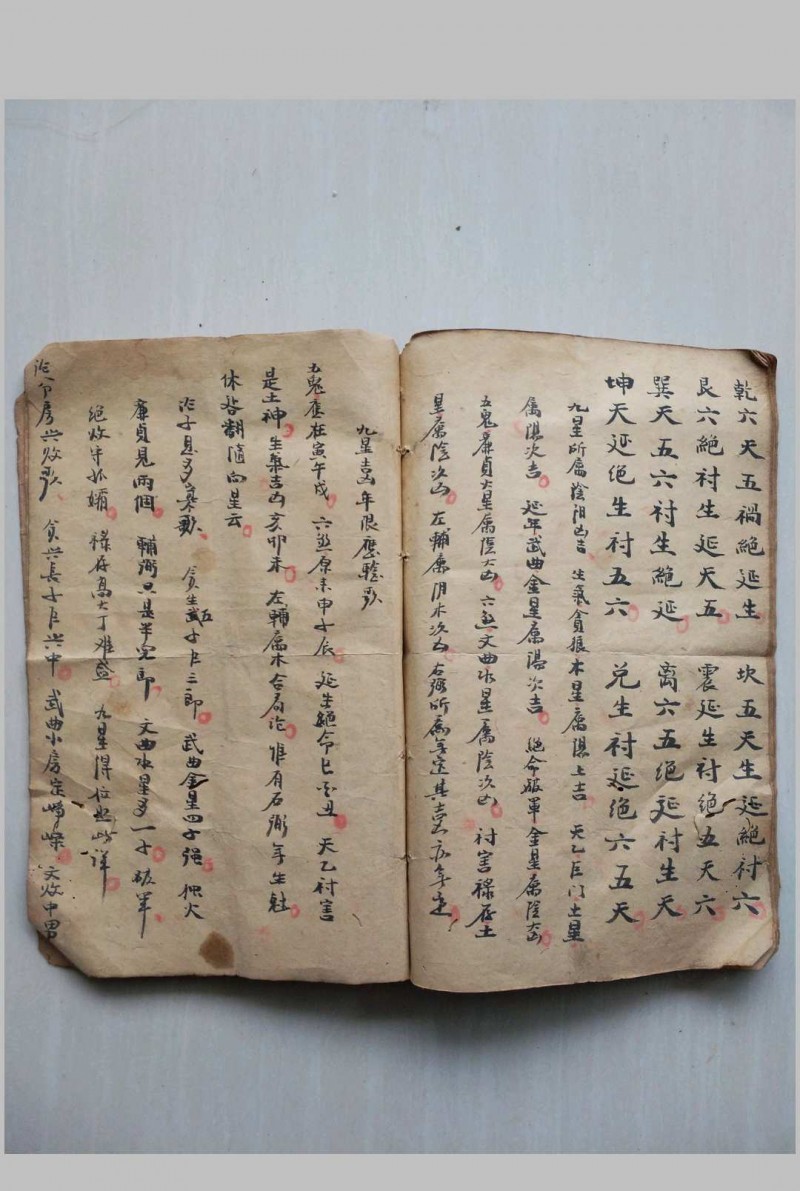 乾六天五禍絶延生 坎五天生延絶衬六
艮六絶衬生延天五 震延生衬绝五天六
巽天五六衬生絶延 离六五绝延衬生天
坤天延绝生衬五六 兑生衬延绝六五天
九星所属陰阳凶吉 生氣貪狼木星属陽上吉 天乙巨门土星
属陽次吉 延年武曲金星属陽次吉 絶命破軍金星属陰大凶
五鬼廉貞火星属陰大凶 六煞文曲水星属陰次凶 衬害祿存土
星属陰次凶 左輔属阴木次凶 右弼所属無定其吉凶亦無定
九星吉年限應驗歌
五鬼應在寅午戍 六煞原来申子辰 延生絕命巳酉丑 天乙衬害
是土神 生氣吉凶亥卯未 左輔属木合局论 惟有右弼無生尅
休咎翻隨向星云
论子息多寡歌 貪生五子巨三郎 武曲金星四子强 独火
廉貞見两個 輔弼只是半完郎 文曲水星多一子 破军
绝败守孤孀 祿存為大丁难盛 九星得位照此詳
论分房兴败歌 貪兴長子巨兴中 武曲小房定崢嶸 文败中男